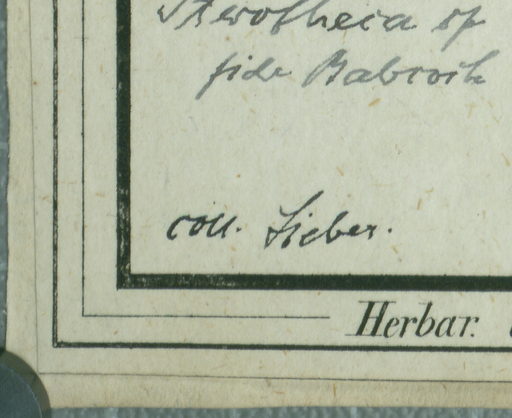 Pterotheca sp
fide Babcock
coll. Sieber.
Herbar.